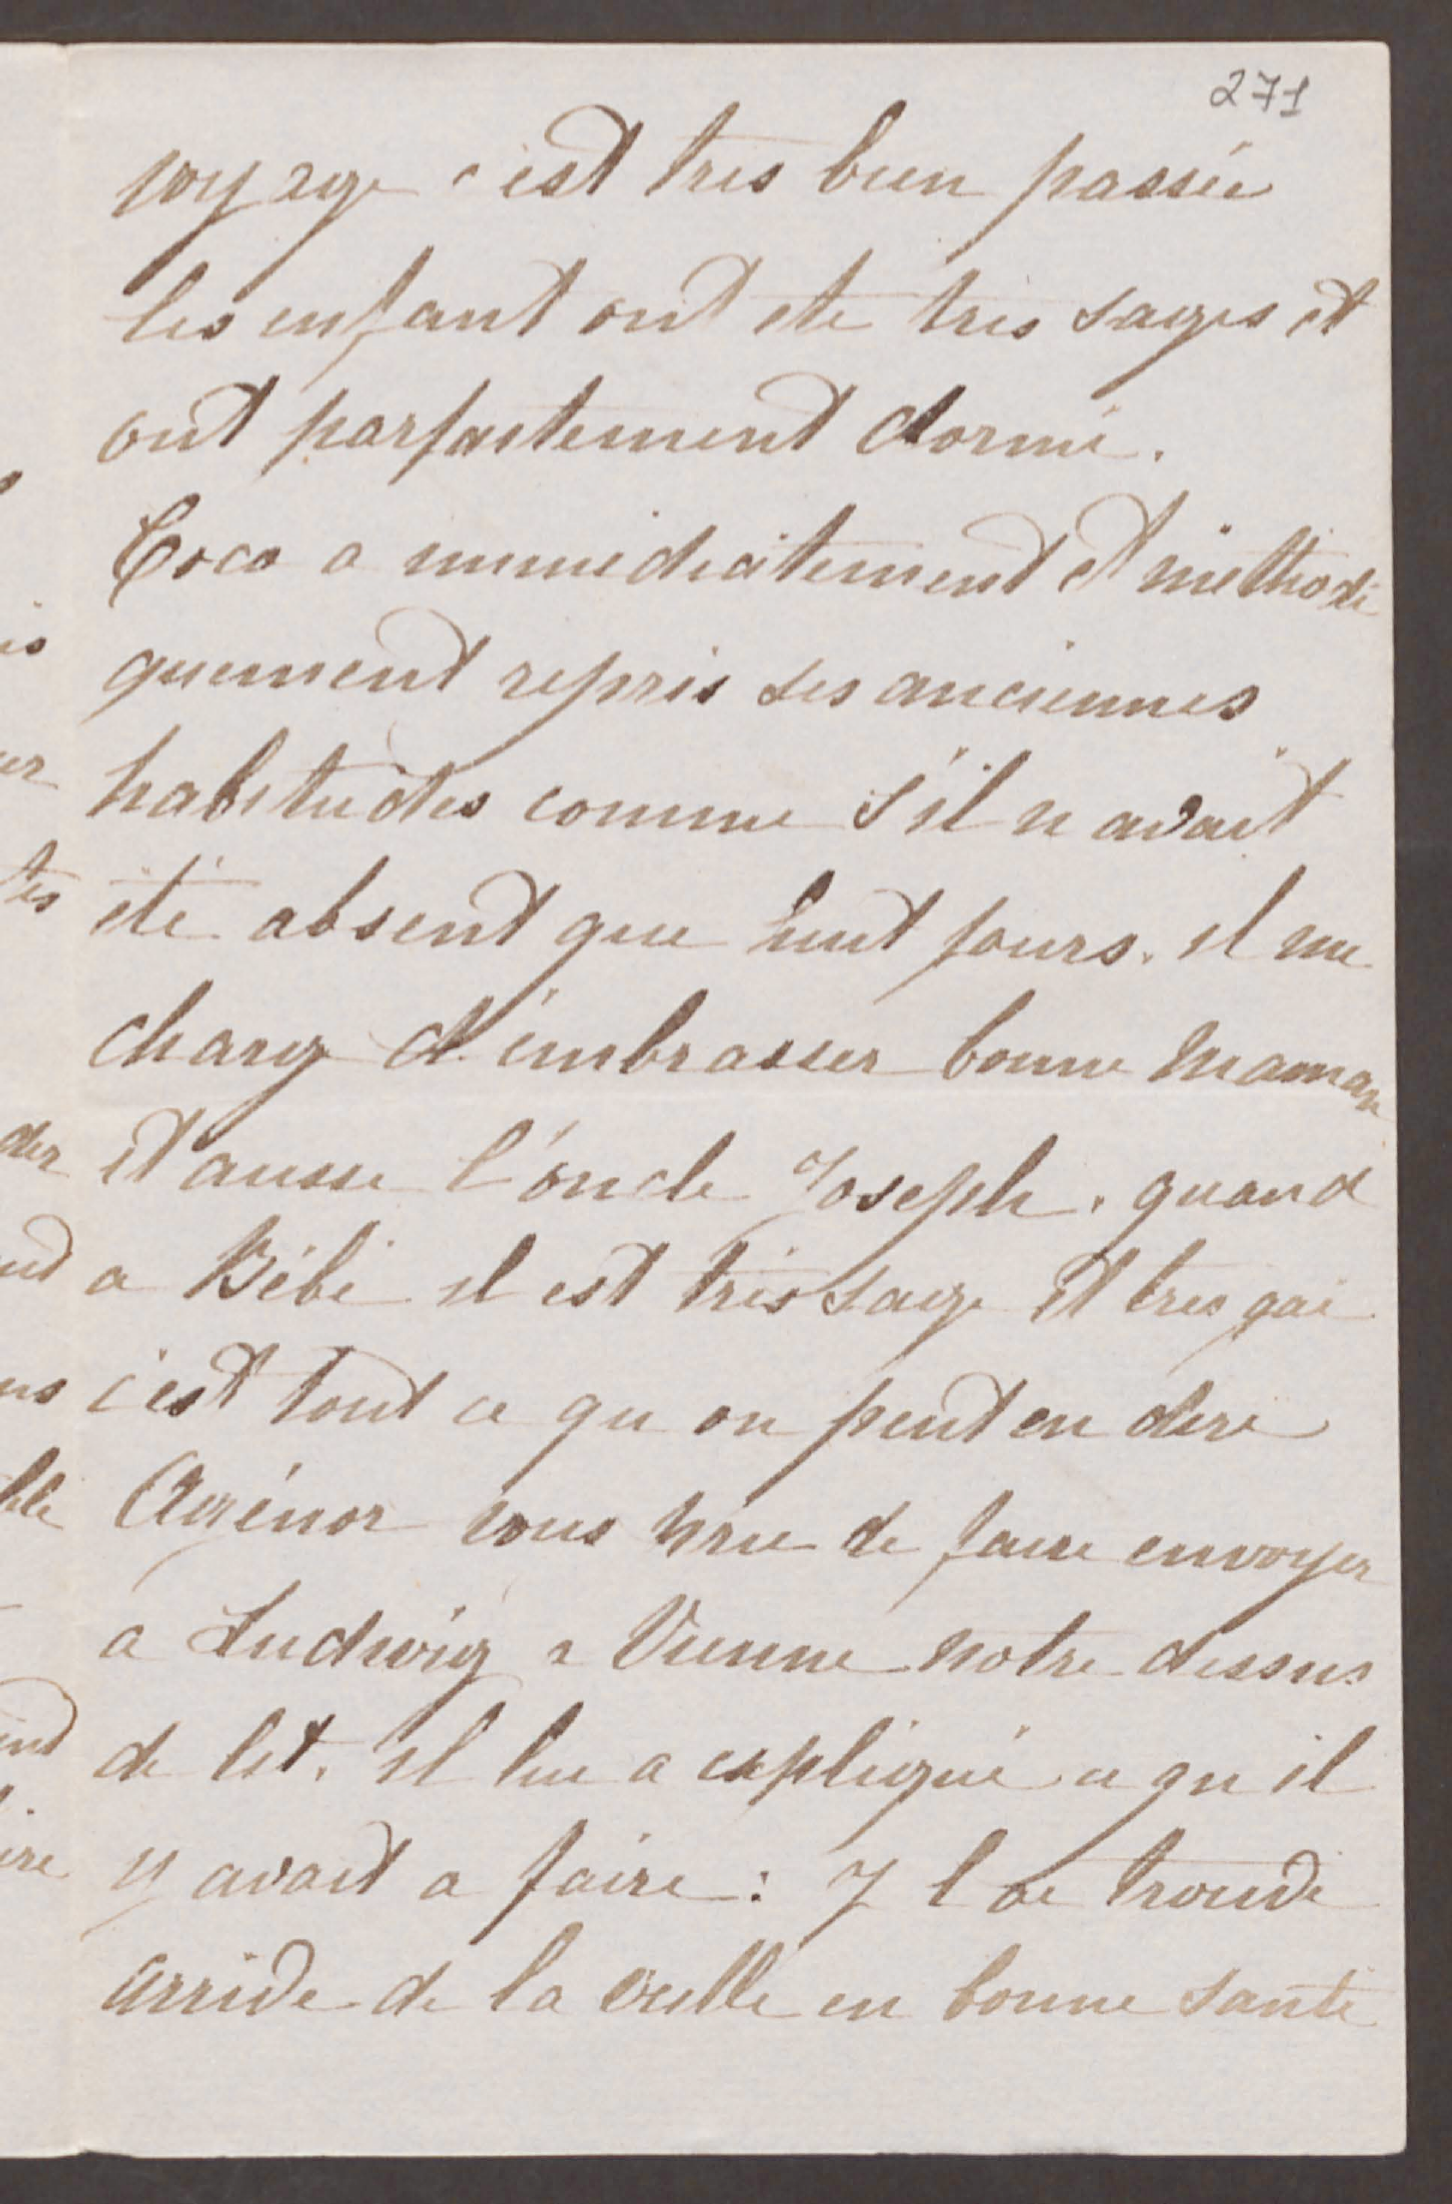 271
voyage c'est tres bien passée
les enfant ont ete tres sages et
ont parfaitement dormi.
Coco a immediatement et méthodi
quement repris ses anciennes
habitudes comme s'il n avait
été absent que huit jours. il me
charge d'embrasser bonne Maman
et aussi l'oncle Joseph. quand
a Bébé il est très sage et tres gai
c'est tout ce qu on peut en dire
Agénor vous prie de faire envoyer
a Ludwig a Vienne notre dessus
de lit. il lui a expliqué ce qu il
y avait a faire : J l ai trouvé
arrivé de la veille en bonne santé